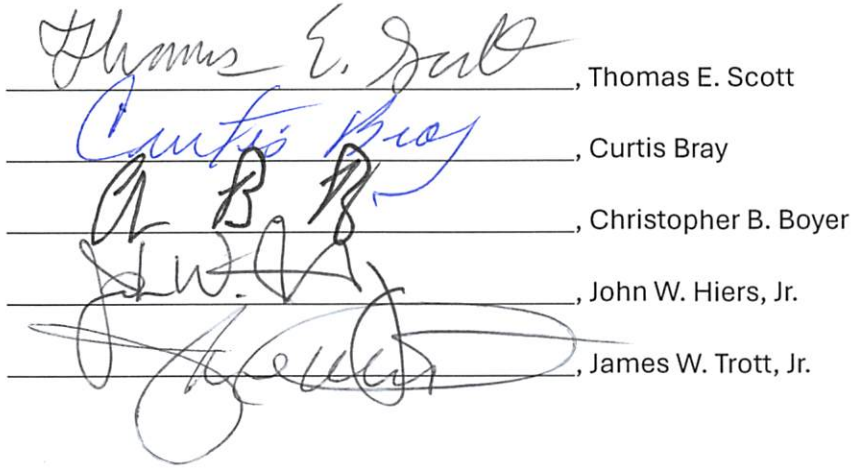 Thomas E. Scott, Thomas E. Scott
Curtis Bray, Curtis Bray
, Christopher B. Boyer
John W., John W. Hiers, Jr.
, James W. Trott, Jr.